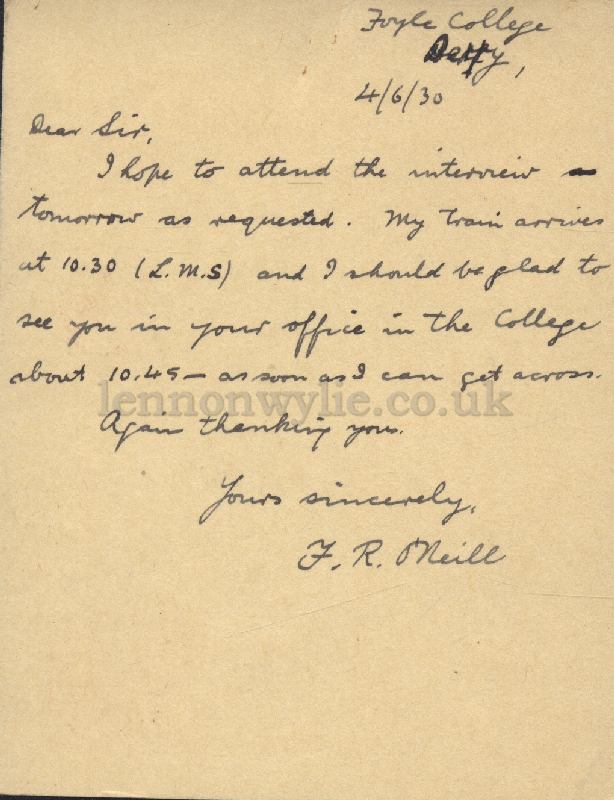 Foyle College
Derry,
4/6/30
Dear Sir,
I hope to attend the interview —
tomorrow as requested. My train arrives
at 10.30 (L.M.S) and I should be glad to
see you in your office in the College
about 10.45 — as soon as I can get across.
lennonwylie.co.uk
Again thanking you.
Yours sincerely,
F. R. O'Neill